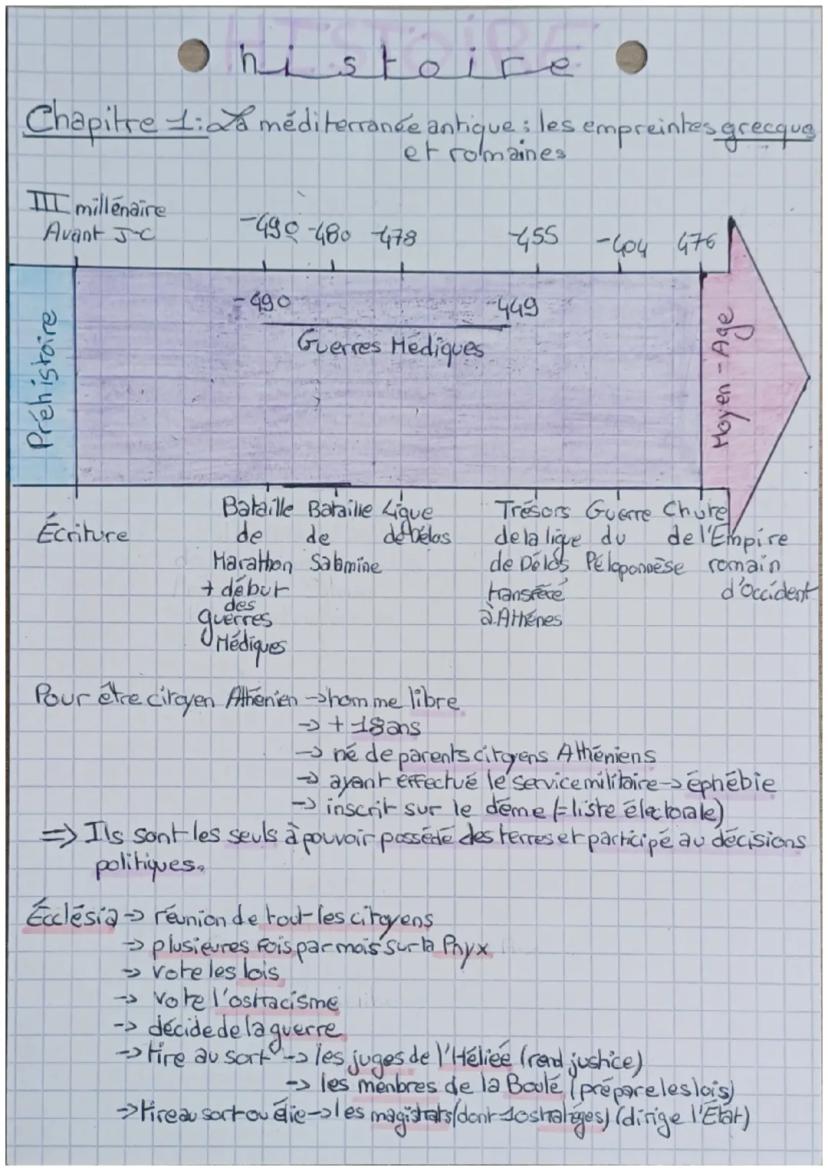 HISTOIRE
histoire
Chapitre 1: La méditerranée antique : les empreintes grecque
et romaines
III millénaire
Avant J-C
-490 -480 -478 -455 -404 476
-490 -449
Guerres Médiques
Préhistoire
Moyen-Age
Écriture
Bataille de Marathon + début des guerres Médiques
Bataille de Salamine
Ligue de Délos
Trésors de la ligue de Délos transféré à Athénes
Guerre du Péloponnèse
Chute de l'Empire romain d'Occident
Pour être citoyen Athénien → homme libre
→ + 18 ans
→ né de parents citoyens Athéniens
→ ayant effectué le service militaire → éphébie
→ inscrit sur le dème (= liste électorale)
⇒ Ils sont les seuls à pouvoir possédé des terres et participé au décisions
politiques.
Écclésia → réunion de tout les citoyens
→ plusieures fois par mois sur la Pnyx
→ vote les lois
→ vote l'ostracisme
→ décide de la guerre
→ tire au sort → les juges de l'Héliéé (rend justice)
→ les menbres de la Boulé (prépare les lois)
→ tire au sort ou élie → les magistrats (dont 10 stratéges) (dirige l'État)